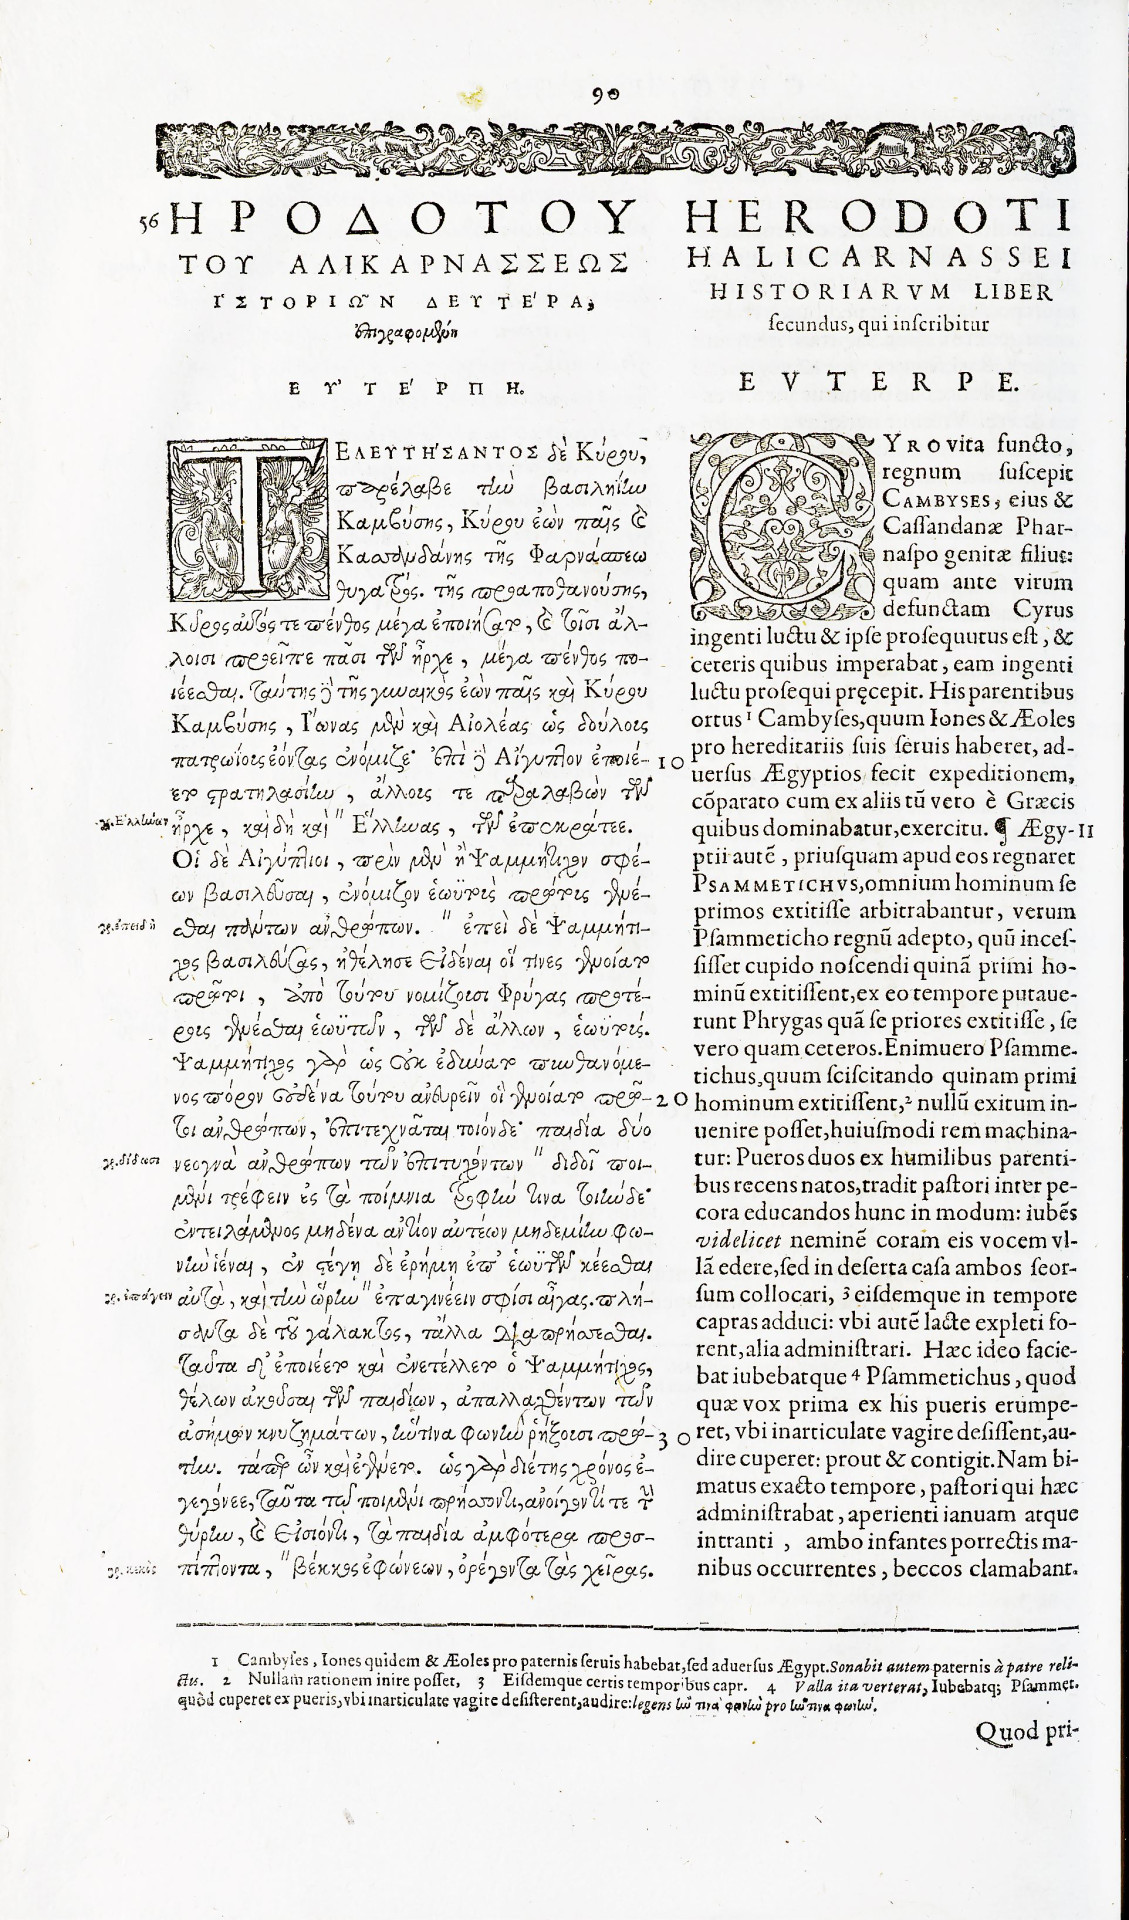 90
56 ΗΡΟΔΟΤΟΥ
ΤΟΥ ΑΛΙΚΑΡΝΑΣΣΕΩΣ
ἹΣΤΟΡΙΩ͂Ν ΔΕΥΤΕ΄ΡΑ,
ἐπιγραφομένη
ΕΥ᾿ΤΕ΄ΡΠΗ.
ΤΕΛΕΥΤΗ΄ΣΑΝΤΟΣ δὲ Κύρου,
παρέλαβε τὴν βασιληίην
Καμβύσης, Κύρου ἐὼν παῖς καὶ
Κασσανδάνης τῆς Φαρνάσπεω
θυγατρός. τῆς προαποθανούσης,
Κῦρος αὐτός τε πένθος μέγα ἐποιήσατο, καὶ τοῖσι ἄλ-
λοισι προεῖπε πᾶσι τῶν ἦρχε, μέγα πένθος ποι-
έεσθαι. ταύτης δὲ τῆς γυναικὸς ἐὼν παῖς καὶ Κύρου
Καμβύσης, Ἴωνας μὲν καὶ Αἰολέας ὡς δούλοις
πατρωίοις ἐόντας ἐνόμιζε· ἐπὶ δὲ Αἴγυπτον ἐποιέ- 10
ετο στρατηλασίην, ἄλλοις τε παραλαβὼν τῶν
γρ. Ἑλλήνων ἦρχε, καὶ δὴ καὶ " Ἕλληνας, τῶν ἐπεκράτεε.
Οἱ δὲ Αἰγύπτιοι, πρὶν μὲν ἢ Ψαμμήτιχον σφέ-
ων βασιλεῦσαι, ἐνόμιζον ἑωϋτοὺς πρώτους γενέ-
γρ. ἐπειδὴ σθαι πάντων ἀνθρώπων. " ἐπεὶ δὲ Ψαμμήτι-
χος βασιλεύσας, ἠθέλησε εἰδέναι οἵ τινες γενοίατο
πρῶτοι, ἀπὸ τούτου νομίζουσι Φρύγας προτέ-
ρους γενέσθαι ἑωϋτῶν, τῶν δὲ ἄλλων, ἑωϋτούς.
Ψαμμήτιχος γὰρ ὡς οὐκ ἐδύνατο πυνθανόμε-
νος πόρον οὐδένα τούτου ἀνευρεῖν οἳ γενοίατο πρῶ- 20
τοι ἀνθρώπων, ἐπιτεχνᾶται τοιόνδε· παιδία δύο
γρ. δίδωσι νεογνὰ ἀνθρώπων τῶν ἐπιτυχόντων " διδοῖ ποι-
μένι τρέφειν ἐς τὰ ποίμνια τροφήν τινα τοιήνδε·
ἐντειλάμενος μηδένα ἀντίον αὐτέων μηδεμίην φω-
νὴν ἱέναι, ἐν στέγῃ δὲ ἐρήμῃ ἐπ᾿ ἑωϋτῶν κέεσθαι
γρ. ἐπάγειν αὐτὰ, καὶ τὴν ὥρην " ἐπαγινέειν σφίσι αἶγας. πλή-
σαντα δὲ τοῦ γάλακτος, τἄλλα διαπρήσσεσθαι.
ταῦτα δ᾿ ἐποίεε τε καὶ ἐνετέλλετο ὁ Ψαμμήτιχος,
θέλων ἀκοῦσαι τῶν παιδίων, ἀπαλλαχθέντων τῶν
ἀσήμων κνυζημάτων, ἥντινα φωνὴν ῥήξουσι πρώ- 30
την. τάπερ ὦν καὶ ἐγένετο. ὡς γὰρ διέτης χρόνος ἐ-
γεγόνεε, ταῦτα τῷ ποιμένι πρήσσοντι, ἀνοίγοντί τε τὴν
θύρην, καὶ εἰσιόντι, τὰ παιδία ἀμφότερα προσ-
γρ. βεκὸς πίπτοντα, " βέκκος ἐφώνεων, ὀρέγοντα τὰς χεῖρας.
HERODOTI
HALICARNASSEI
HISTORIARVM LIBER
secundus, qui inscribitur
EVTERPE.
CYRO vita functo,
regnum suscepit
CAMBYSES, eius &
Cassandanæ Phar-
naspo genitæ filius:
quam ante virum
defunctam Cyrus
ingenti luctu & ipse prosequutus est, &
ceteris quibus imperabat, eam ingenti
luctu prosequi pręcepit. His parentibus
ortus 1 Cambyses, quum Iones & Æoles
pro hereditariis suis seruis haberet, ad-
uersus Ægyptios fecit expeditionem,
cōparato cum ex aliis tū vero è Græcis
quibus dominabatur, exercitu. ¶ Ægy- II
ptii autē, priusquam apud eos regnaret
PSAMMETICHVS, omnium hominum se
primos extitisse arbitrabantur, verum
Psammeticho regnū adepto, quū inces-
sisset cupido noscendi quinā primi ho-
minū extitissent, ex eo tempore putaue-
runt Phrygas quā se priores extitisse, se
vero quam ceteros. Enimuero Psamme-
tichus, quum sciscitando quinam primi
hominum extitissent, 2 nullū exitum in-
uenire posset, huiusmodi rem machina-
tur: Pueros duos ex humilibus parenti-
bus recens natos, tradit pastori inter pe-
cora educandos hunc in modum: iubēs
videlicet neminē coram eis vocem vl-
lā edere, sed in deserta casa ambos seor-
sum collocari, 3 eisdemque in tempore
capras adduci: vbi autē lacte expleti fo-
rent, alia administrari. Hæc ideo facie-
bat iubebatque 4 Psammetichus, quod
quæ vox prima ex his pueris erumpe-
ret, vbi inarticulate vagire desissent, au-
dire cuperet: prout & contigit. Nam bi-
matus exacto tempore, pastori qui hæc
administrabat, aperienti ianuam atque
intranti, ambo infantes porrectis ma-
nibus occurrentes, beccos clamabant.
1 Cambyses, Iones quidem & Æoles pro paternis seruis habebat, sed aduersus Ægypt. Sonabit autem paternis à patre reli-
ctis. 2 Nullam rationem inire posset, 3 Eisdemque certis temporibus capr. 4 Valla ita verterat, Iubebatq; Psammet.
quòd cuperet ex pueris, vbi inarticulate vagire desisterent, audire: legens pro
Quod pri-